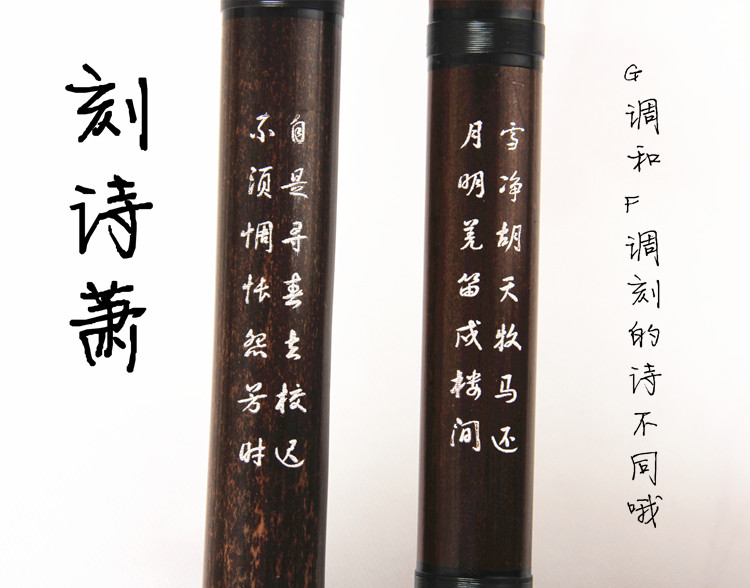 刻诗萧
自是寻春去校迟
不须惆怅怨芳时
雪净胡天牧马还
月明羌笛戍楼间
G调和F调刻的诗不同哦